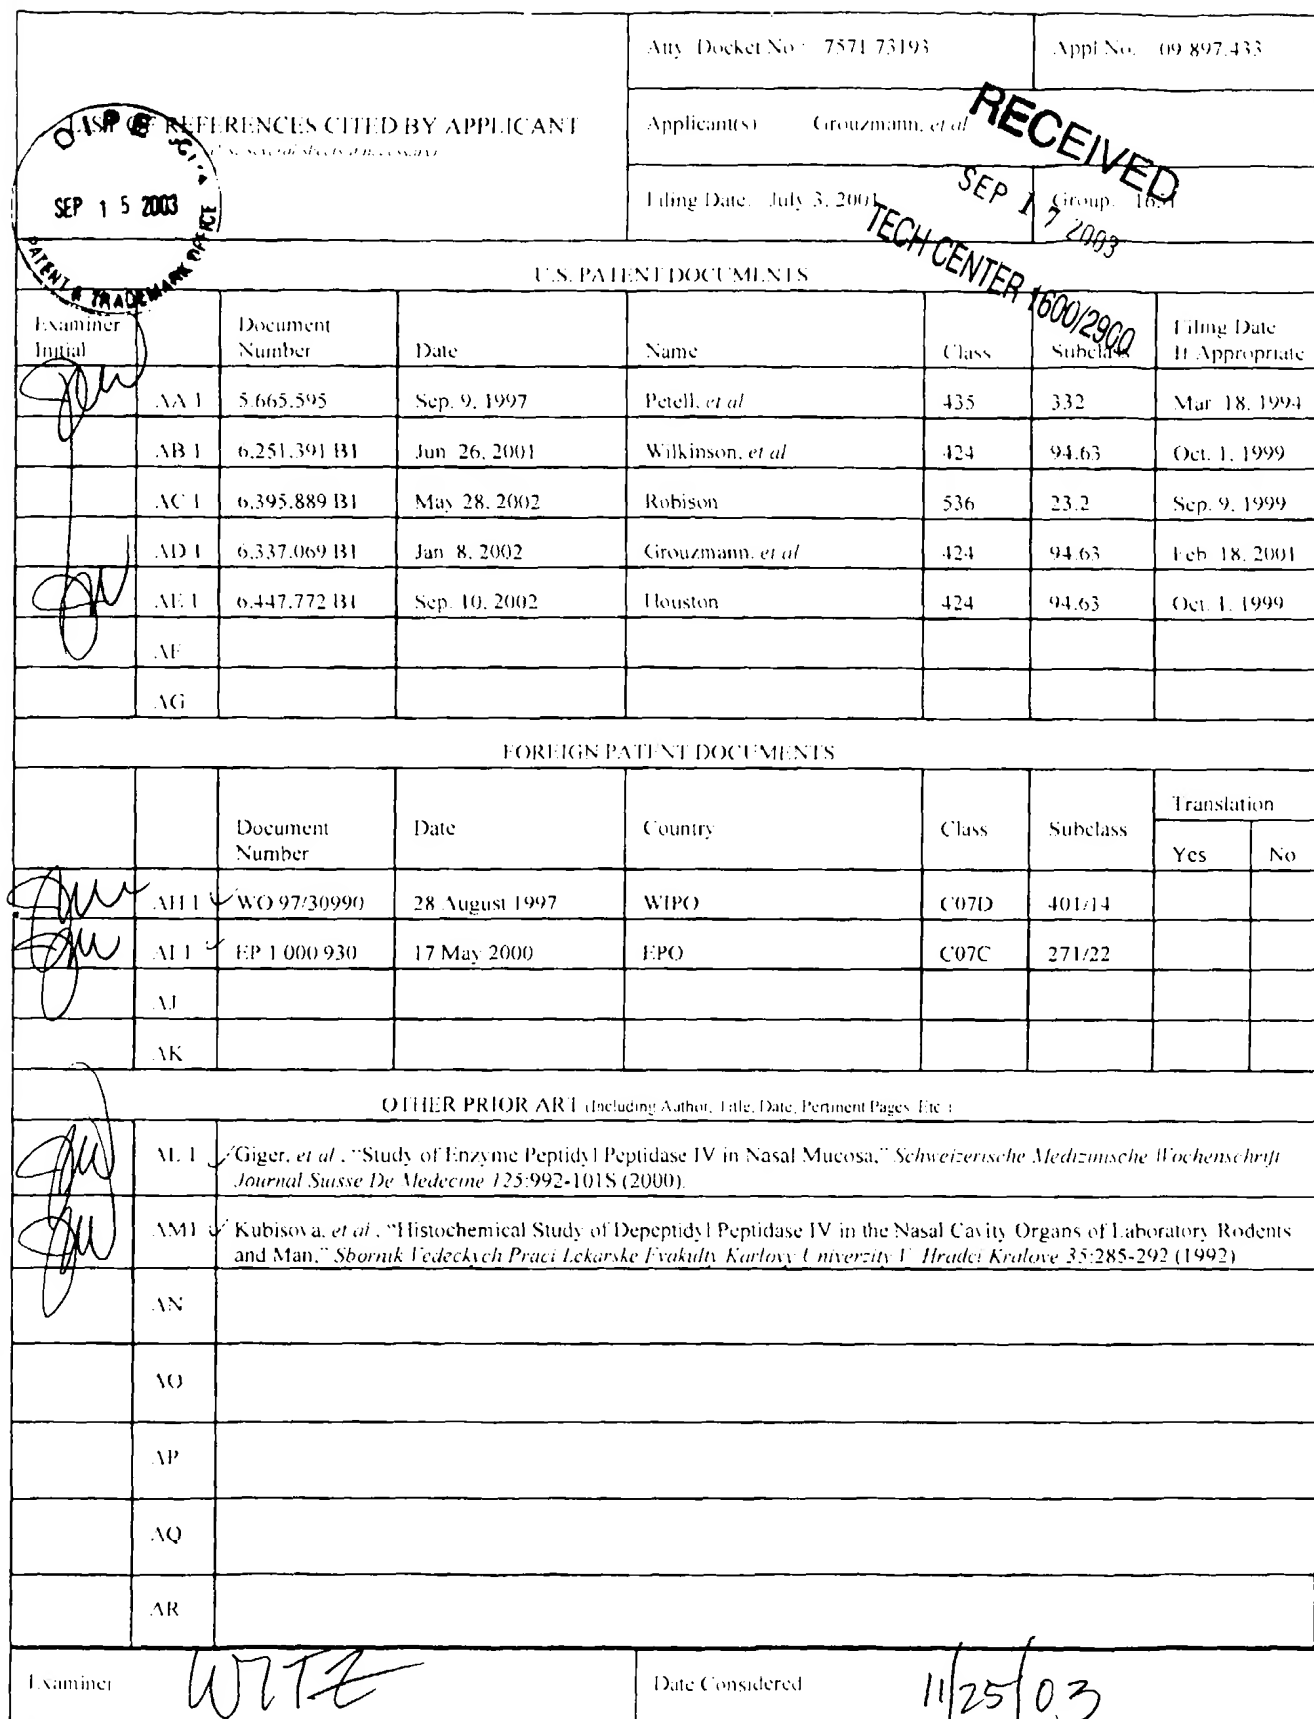 Atty. Docket No.: 7571/73193
Appl No. 09/897,433
LIST OF REFERENCES CITED BY APPLICANT
(Use several sheets if necessary)
Applicant(s) Grouzmann, et al
Filing Date: July 3, 2001
Group:
OIPE
SEP 15 2003
PATENT & TRADEMARK OFFICE
RECEIVED
SEP 17 2003
TECH CENTER 1600/2900
U.S. PATENT DOCUMENTS
Examiner Initial Document Number Date Name Class Subclass Filing Date If Appropriate
AA1 5,665,595 Sep. 9, 1997 Petell, et al 435 332 Mar. 18, 1994
AB1 6,251,391 B1 Jun. 26, 2001 Wilkinson, et al 424 94.63 Oct. 1, 1999
AC1 6,395,889 B1 May 28, 2002 Robison 536 23.2 Sep. 9, 1999
AD1 6,337,069 B1 Jan. 8, 2002 Grouzmann, et al 424 94.63 Feb. 18, 2001
AE1 6,447,772 B1 Sep. 10, 2002 Houston 424 94.63 Oct. 1, 1999
AF
AG
FOREIGN PATENT DOCUMENTS
Document Number Date Country Class Subclass Translation
Yes No
AH1 WO 97/30990 28 August 1997 WIPO C07D 401/14
AI1 EP 1 000 930 17 May 2000 EPO C07C 271/22
AJ
AK
OTHER PRIOR ART (Including Author, Title, Date, Pertinent Pages, Etc.)
AL1 Giger, et al., "Study of Enzyme Peptidyl Peptidase IV in Nasal Mucosa," Schweizerische Medizinische Wochenschrift
Journal Suisse De Medecine 125:992-101S (2000).
AM1 Kubisova, et al., "Histochemical Study of Depeptidyl Peptidase IV in the Nasal Cavity Organs of Laboratory Rodents
and Man," Sbornik Vedeckych Praci Lekarske Fvakulty Karlovy Univerzity V. Hradci Kralove 35:285-292 (1992)
AN
AO
AP
AQ
AR
Examiner WITZ
Date Considered 11/25/03